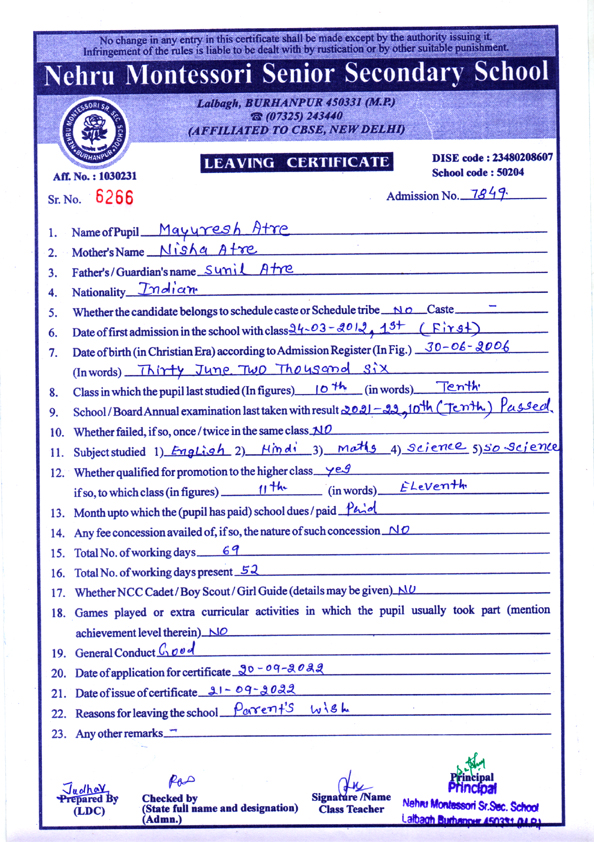 No change in any entry in this certificate shall be made except by the authority issuing it.
Infringement of the rules is liable to be dealt with by rustication or by other suitable punishment.
Nehru Montessori Senior Secondary School
NEHRU MONTESSORI SR. SEC. SCHOOL
BURHANPUR
Lalbagh, BURHANPUR 450331 (M.P.)
☎ (07325) 243440
(AFFILIATED TO CBSE, NEW DELHI)
LEAVING CERTIFICATE
DISE code : 23480208607
School code : 50204
Aff. No. : 1030231
Sr. No. 6266
Admission No. 7849.
1. Name of Pupil Mayuresh Atre
2. Mother's Name Nisha Atre
3. Father's / Guardian's name Sunil Atre
4. Nationality Indian
5. Whether the candidate belongs to schedule caste or Schedule tribe No Caste –
6. Date of first admission in the school with class 24-03-2012, 1st (First)
7. Date of birth (in Christian Era) according to Admission Register (In Fig.) 30-06-2006
(In words) Thirty June Two Thousand Six
8. Class in which the pupil last studied (In figures) 10th (in words) Tenth
9. School / Board Annual examination last taken with result 2021-22, 10th (Tenth) Passed
10. Whether failed, if so, once / twice in the same class NO
11. Subject studied 1) English 2) Hindi 3) Maths 4) Science 5) So science
12. Whether qualified for promotion to the higher class yes
if so, to which class (in figures) 11th (in words) Eleventh
13. Month upto which the (pupil has paid) school dues / paid Paid
14. Any fee concession availed of, if so, the nature of such concession NO
15. Total No. of working days 69
16. Total No. of working days present 52
17. Whether NCC Cadet / Boy Scout / Girl Guide (details may be given) NO
18. Games played or extra curricular activities in which the pupil usually took part (mention
achievement level therein) NO
19. General Conduct Good
20. Date of application for certificate 20-09-2022
21. Date of issue of certificate 21-09-2022
22. Reasons for leaving the school Parent's wish
23. Any other remarks –
Jadhav
Prepared By
(LDC)
Checked by
(State full name and designation)
(Admn.)
Signature /Name
Class Teacher
Principal
Principal
Nehru Montessori Sr.Sec. School
Lalbagh Burhanpur 450331 (M.P.)